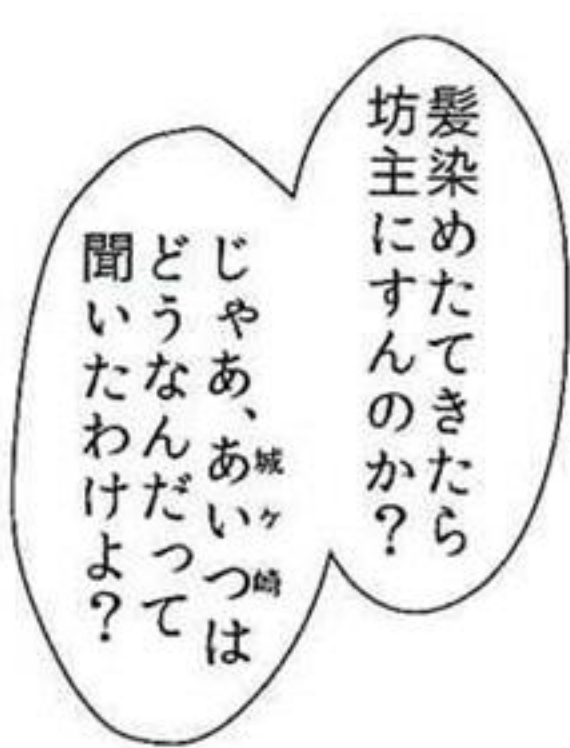 髪染めたてきたら
坊主にすんのか?
じゃあ、あいつは
城ヶ崎
どうなんだって
聞いたわけよ?